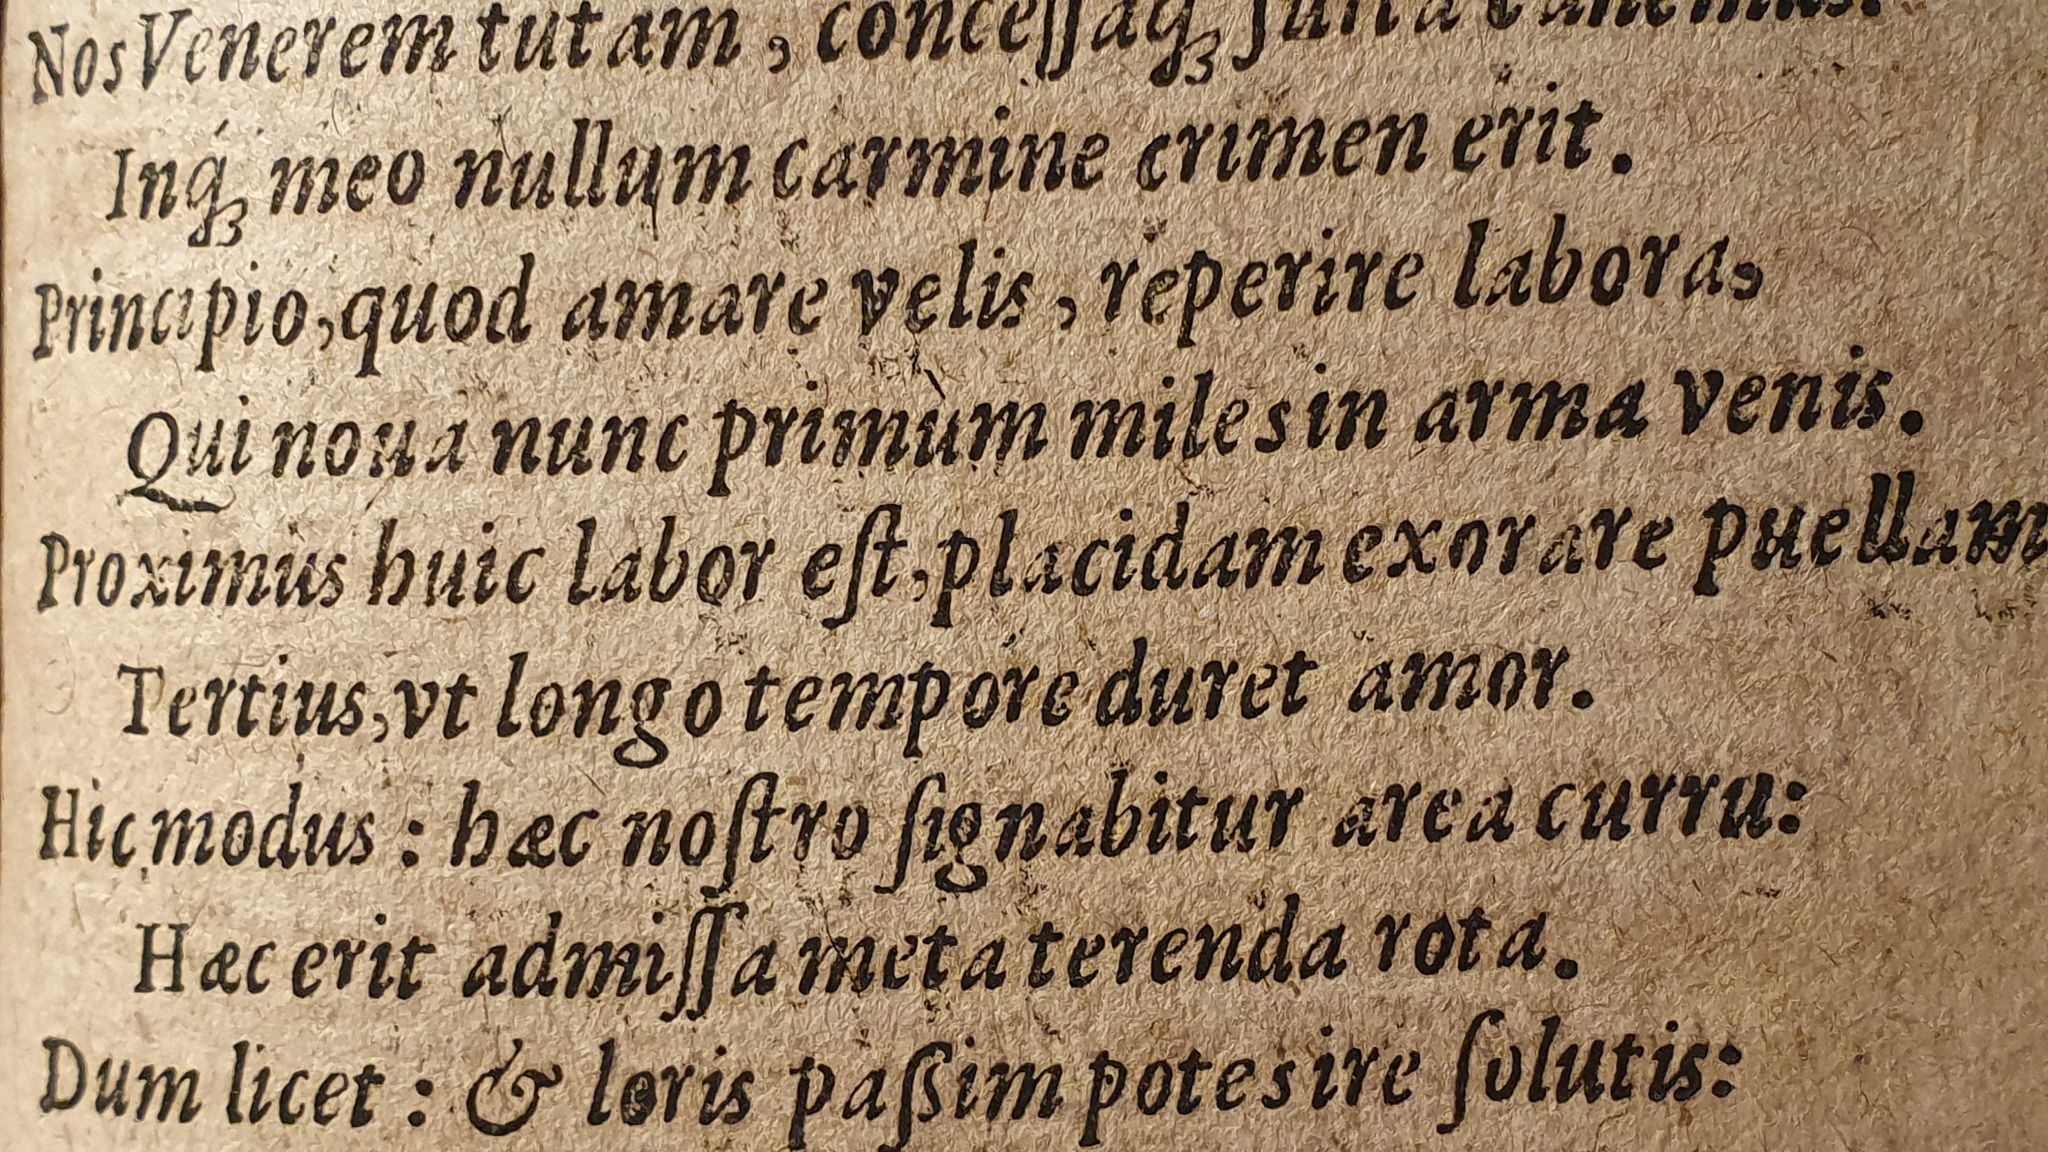 Nos Venerem tutam, concessaq; furta canemus:
Inq́; meo nullum carmine crimen erit.
Principio, quod amare velis, reperire labora,
Qui noua nunc primùm miles in arma venis.
Proximus huic labor eſt, placidam exorare puellam
Tertius, vt longo tempore duret amor.
Hic modus: hæc noſtro ſignabitur area curru:
Hæc erit admiſſa meta terenda rota.
Dum licet: & loris paßim potes ire ſolutis: